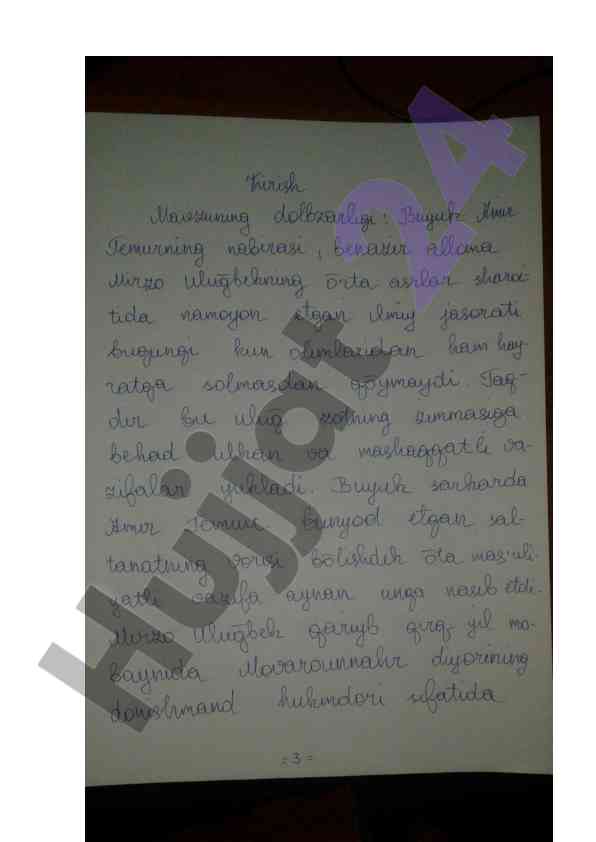 Kirish
Mavzuning dolbzarligi: Buyuk Amir
Temurning nabirasi, benazir alloma
Mirzo Ulug̃bekning õrta asrlar sharoi-
tida namoyon etgan ilmiy jasorati
bugungi kun olimlaridan ham hay-
ratga solmasdan qõymaydi. Taq-
dir bu ulug̃ zotning zimmasiga
behad ulkan va mashaqqatli va-
zifalar yukladi. Buyuk sarkarda
Amir Temur bunyod etgan sal-
tanatning vorisi bõlishdek õta mas'uli-
yatli vazifa aynan unga nasib etdi.
Mirzo Ulug̃bek qariyb qirq yil mo-
baynida Movarounnahr diyorining
donishmand hukmdori sifatida
= 3 =
Hujjat 24